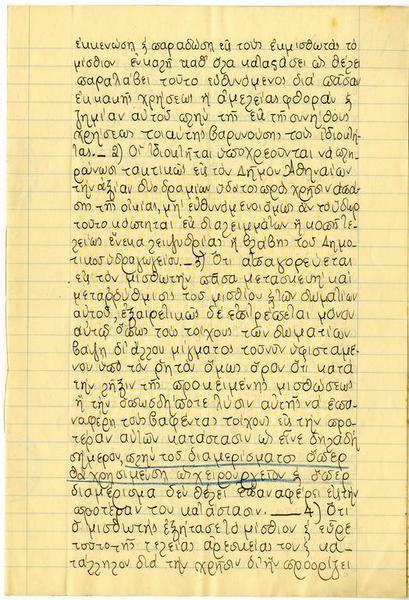 ἐκκενώσῃ ϗ παραδώσῃ εἰς τοὺς ἐκμισθωτὰς τὸ
μίσθιον ἐν καλῇ καθ' ὅλα καταστάσει ὡς θέλει
παραλάβει τοῦτο εὐθυνόμενος διὰ πᾶσαν
ἐκ κακῆς χρήσεως ἢ ἀμελείας φθορὰν ϗ
ζημίαν αὐτοῦ πλὴν τῆς ἐκ τῆς συνήθους
χρήσεως τοιαύτης βαρυνούσης τοὺς ἰδιοκτή-
τας.— 2) Οἱ ἰδιοκτῆται ὑποχρεοῦνται νὰ πλη-
ρώνωσι τακτικῶς εἰς τὸν Δῆμον Ἀθηναίων
τὴν ἀξίαν δύο δραμίων ὕδατος πρὸς χρῆσιν ἁπά-
σης τῆς οἰκίας, μὴ εὐθυνόμενοι ὅμως ἂν τὸ ὕδωρ
τοῦτο κόπτηται ἐκ διαλειμμάτων ἢ κοπῇ τε-
λείως ἕνεκα λειψυδρίας ἢ βλάβης τοῦ Δημο-
τικοῦ ὑδραγωγείου.—3) Ὅτι ἀπαγορεύεται
εἰς τὸν μισθωτὴν πᾶσα μετασκευὴ καὶ
μεταρρύθμισις τοῦ μισθίου ϗ τῶν δωματίων
αὐτοῦ, ἐξαιρετικῶς δὲ ἐπιτρέπεται μόνον
αὐτῷ ὅπως τοὺς τοίχους τῶν δωματίων
βάψῃ δι' ἄλλου μίγματος τοῦ νῦν ὑφισταμέ-
νου ὑπὸ τὸν ῥητὸν ὅμως ὅρον ὅτι κατὰ
τὴν λῆξιν τῆς προκειμένης μισθώσεως
ἢ τὴν ὁπωσδήποτε λύσιν αὐτῆς νὰ ἐπα-
ναφέρῃ τοὺς βαφέντας τοίχους εἰς τὴν προ-
τέραν αὐτῶν κατάστασιν ὡς εἶνε δηλαδὴ
σήμερον, πλὴν τοῦ διαμερίσματος ὅπερ
θὰ χρησιμεύσῃ ὡς χειρουργεῖον ϗ ὅπερ
διαμέρισμα δὲν θέλει ἐπαναφέρει εἰς τὴν
προτέραν του κατάστασιν.— 4) Ὅτι
ὁ μισθωτὴς ἐξήτασε τὸ μίσθιον ϗ εὗρε
τοῦτο τῆς τελείας ἀρεσκείας του ϗ κα-
τάλληλον διὰ τὴν χρῆσιν δι' ἣν προορίζει